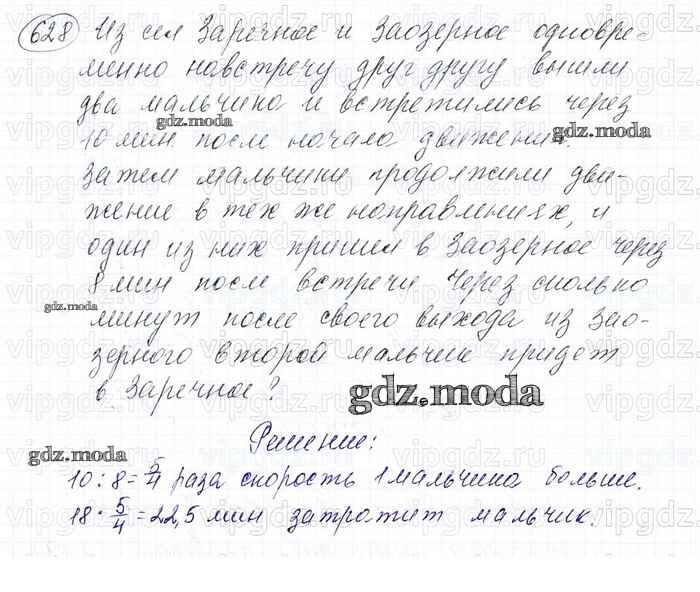 628 Из сел Заречное и Заозерное одновре-
менно навстречу друг другу вышли
два мальчика и встретились через
gdz.moda gdz.moda
10 мин после начала движения.
Затем мальчики продолжили дви-
жение в тех же направлениях, и
один из них пришел в Заозерное через
8 мин после встречи. Через сколько
gdz.moda
минут после своего выхода из Зао-
зерного второй мальчик придет
в Заречное?
gdz.moda
Решение:
gdz.moda
10 : 8 = 5/4 раза скорость 1 мальчика больше.
18 · 5/4 = 22,5 мин затратит мальчик.